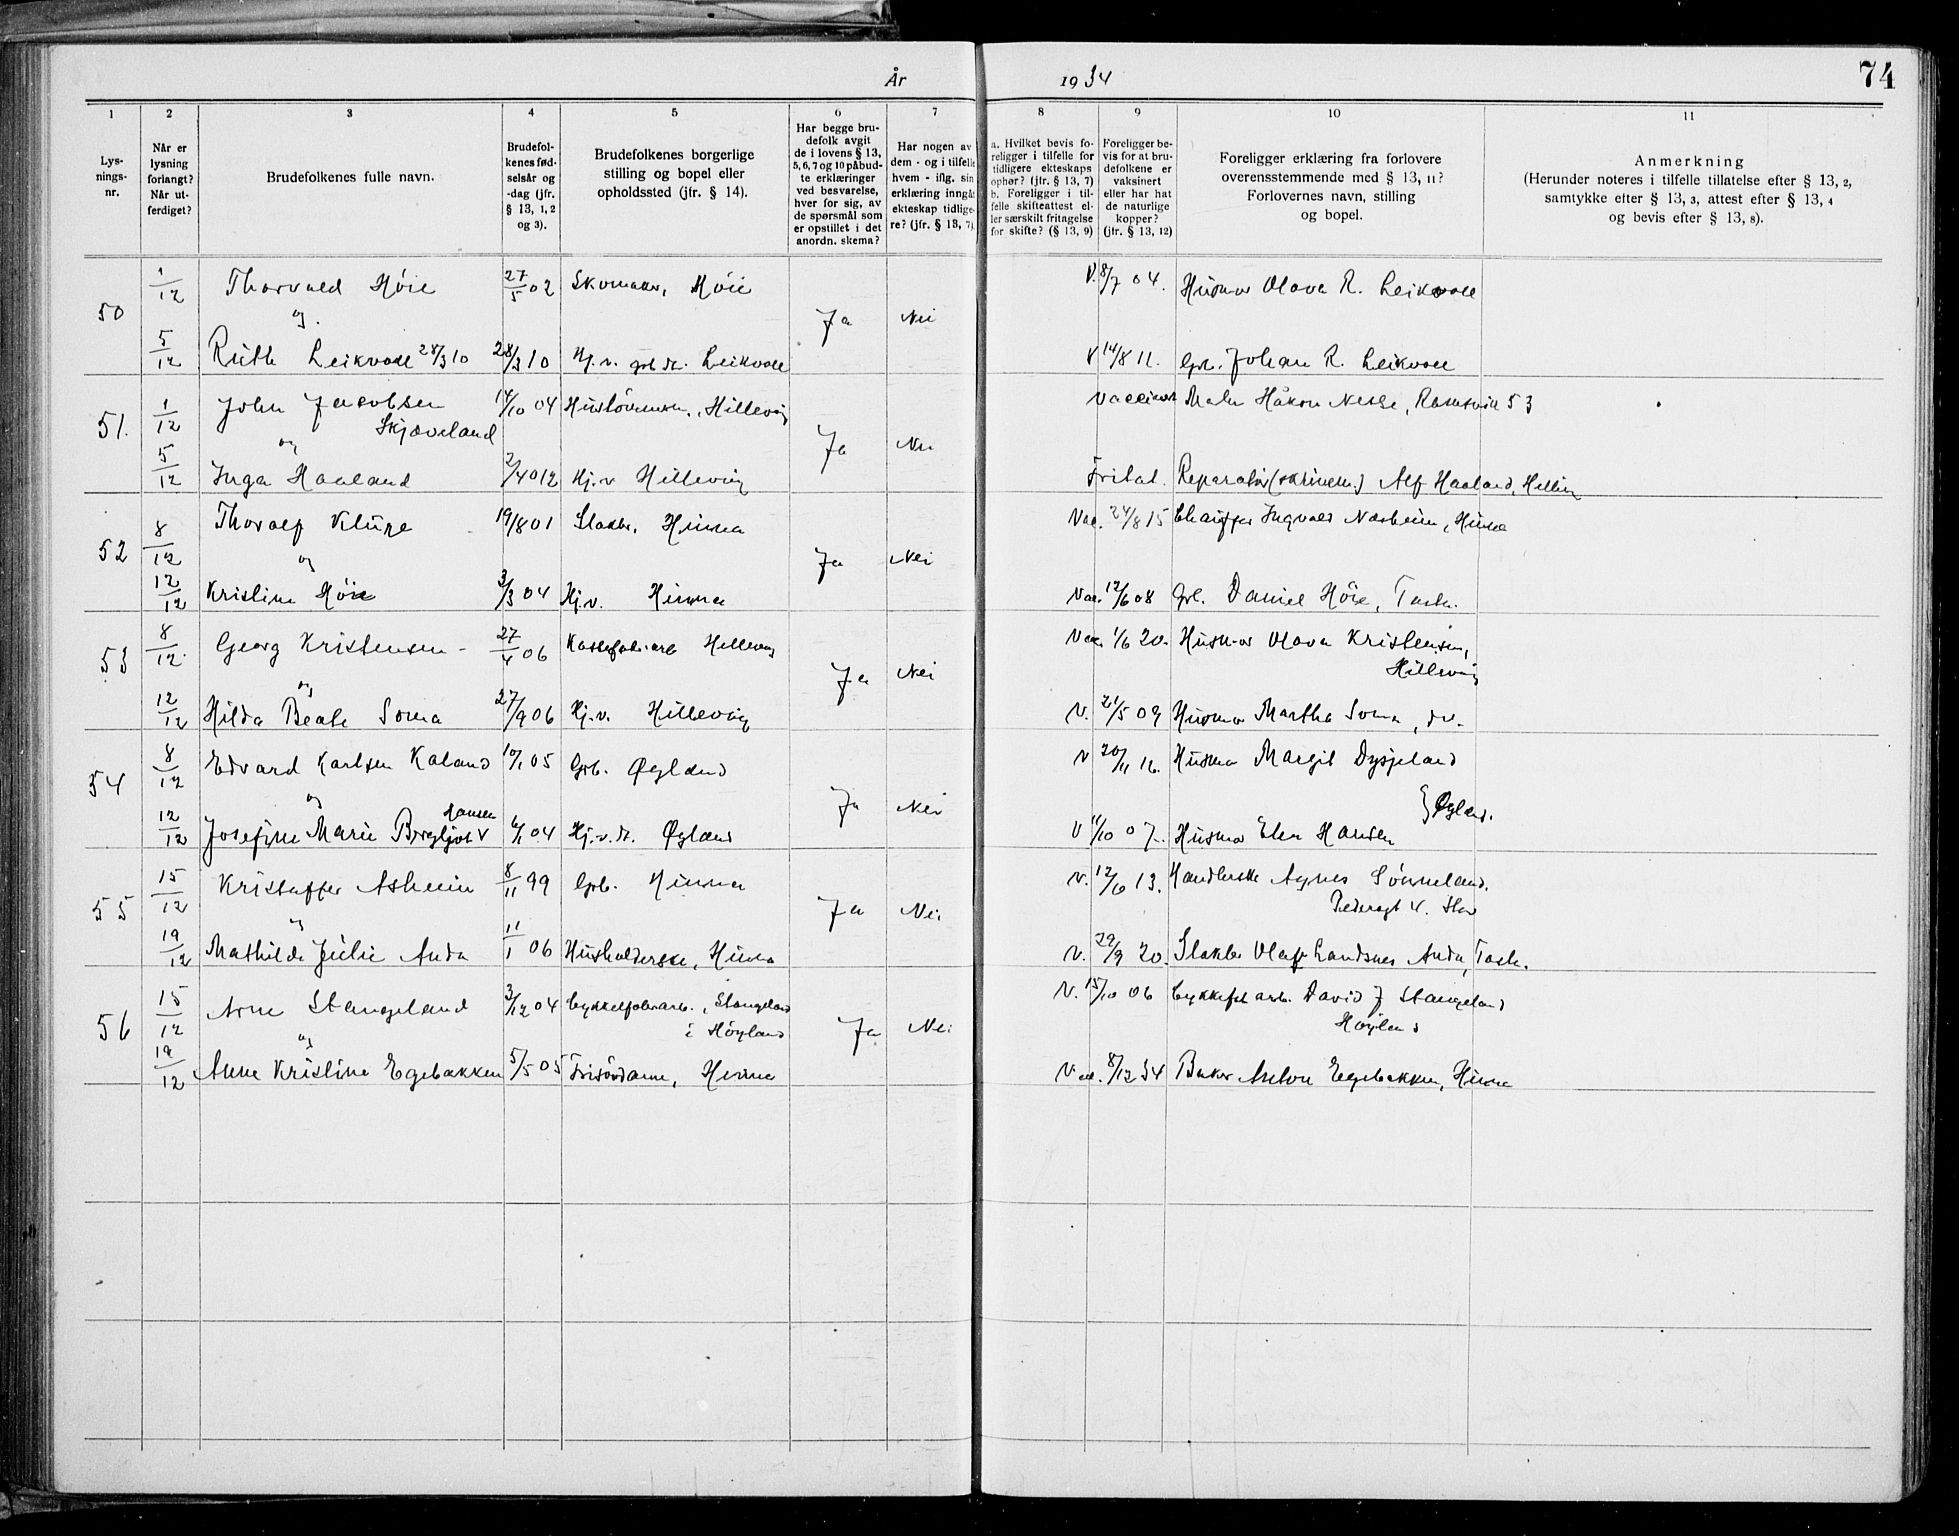 År 1934
74
1 2 3 4 5 6 7 8 9 10 11
Lys-
nings-
nr.
Når er
lysning
forlangt?
Når ut-
ferdiget?
Brudefolkenes fulle navn.
Brudefol-
kenes fød-
selsår og
-dag (jfr.
§ 13, 1, 2
og 3).
Brudefolkenes borgerlige
stilling og bopel eller
opholdssted (jfr. § 14).
Har begge bru-
defolk avgit
de i lovens § 13,
5, 6, 7 og 10 påbud-
te erklæringer
ved besvarelse,
hver for sig, av
de spørsmål som
er opstillet i det
anordn. skema?
Har nogen av
dem - og i tilfelle
hvem - iflg. sin
erklæring inngåt
ekteskap tidlige-
re? (jfr. § 13, 7)
a. Hvilket bevis fo-
religger i tilfelle for
tidligere ekteskaps
ophør? (jfr. § 13, 7)
b. Foreligger i til-
felle skifteattest el-
ler særskilt fritagelse
for skifte? (§ 13, 9)
Foreligger be-
vis for at bru-
defolkene er
vaksinert
eller har hat
de naturlige
kopper?
(jfr. § 13, 12)
Foreligger erklæring fra forlovere
overensstemmende med § 13, 11?
Forlovernes navn, stilling
og bopel.
Anmerkning
(Herunder noteres i tilfelle tillatelse efter § 13, 2,
samtykke efter § 13, 3, attest efter § 13, 4
og bevis efter § 13, 8).
50 1/12 Thorvald Höie 27/5 02 Skomaker, Höie V. 8/7 04. Husmor Olava R. Leikvoll
og Ja Nei
5/12 Ruth Leikvoll 28/3 10 28/3 10 Hj.v. Leikvoll V 14/8 11. Grb. Johan R. Leikvoll
51. 1/12 John Jacobsen 14/10 04 Hillevåg Maler Håkon Nesse, 53
Skjæveland
og Ja Nei
5/12 Inga Haaland Hj.v Hillevåg Fritat. Reparatör Alf Haaland,
52 8/12 Thoralf Kluge 19/8 01 Slakter, Hinna Vac. 24/8 15 Chauffør Ingvald Næsheim, Hinna
og Ja Nei
12/12 Kristine Höie 3/3 04 Hj.v. Hinna Vac. 12/6 08 Grb. Daniel Höie, Tasta.
53 8/12 Georg Kristensen 27/4 06 Hillevåg Vac. 1/6 20. Husmor Olava Kristensen,
Hillevåg
og Ja Nei
12/12 Hilda Beate Soma 27/9 06 Hj.v. Hillevåg V. 21/5 09 Husmor Martha Soma, do.
54 8/12 Edvard Karlsen Kaland 10/1 05 Grb. Øgland V 20/11 16. Husmor Margit Dysjeland
og Ja Nei } Øgland.
Hansen
12/12 Josefine Marie Bergljot v 6/1 04 Hj.v. Øgland V 11/10 07. Husmor Elen Hansen
55 15/12 Kristoffer Asheim 8/11 99 Grb. Hinna V. 12/6 13. Handlerske Agnes Sönneland.
Pedersgt 4. Stav
og Ja Nei
19/12 Mathilde Julie Anda 11/1 06 Husholderske, Hinna V. 29/9 20. Slakter Olaf Landsnes Anda, Tasta.
56 15/12 Arne Stangeland 3/12 04 Cykkelfabrarb., Stangeland V. 15/10 06 Cykkelfabarb. David J Stangeland
i Höyland Höyland
og Ja Nei
19/12 Anne Kristine Egebakken 5/5 05 Frisördame, Hinna Vac. 8/12 34 Baker Anton Egebakken, Hinna